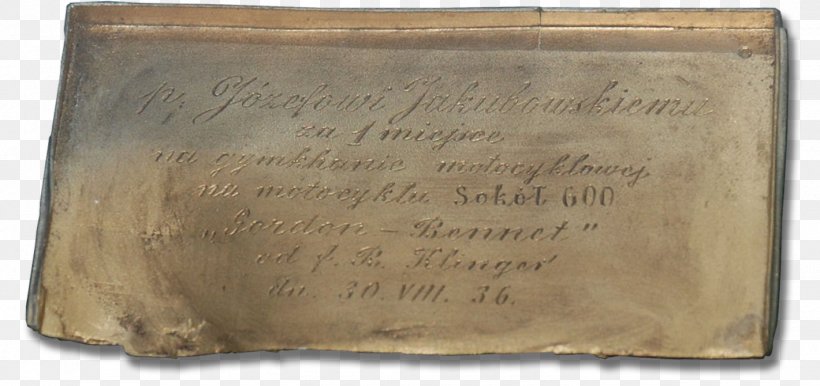 p. Józefowi Jakubowskiemu
za 1 miejsce
na gymkhanie motocyklowej
na motocyklu Sokół 600
„Gordon – Bennet"
od f. B. Klinger
dn. 30. VIII. 36.